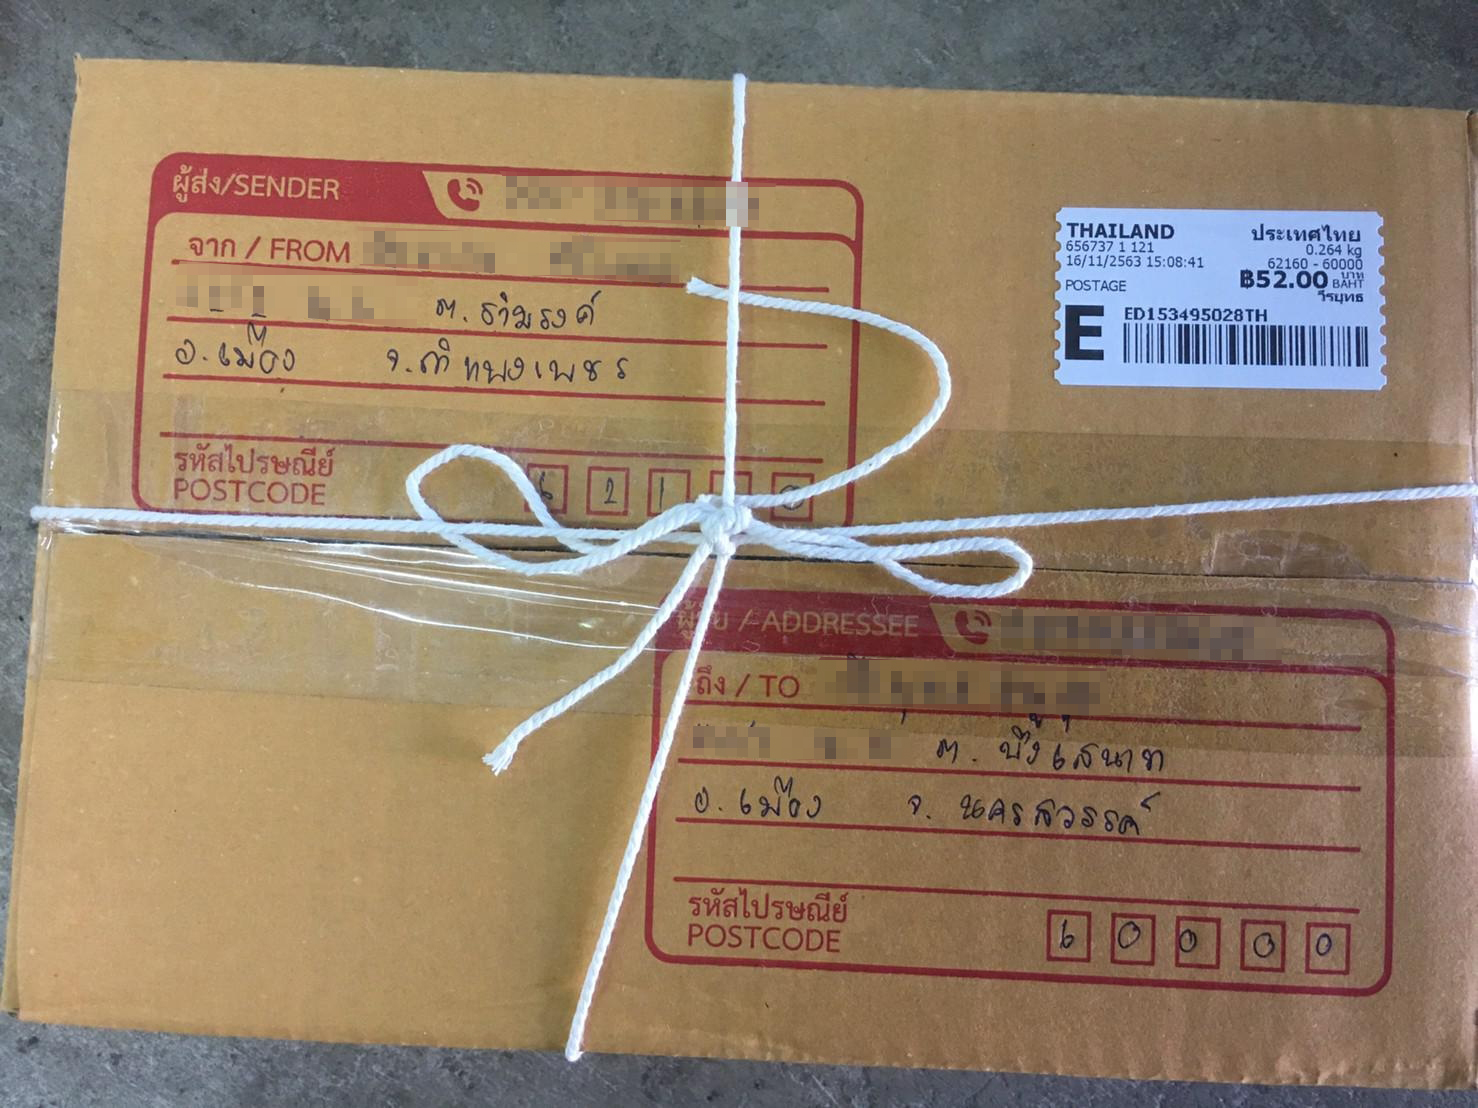 ผู้ส่ง/SENDER
จาก / FROM
ต. ธำมรงค์
อ. เมือง จ. กำแพงเพชร
รหัสไปรษณีย์
POSTCODE
6 2 1 0
THAILAND ประเทศไทย
656737 1 121 0.264 kg
16/11/2563 15:08:41 62160 - 60000
POSTAGE ฿52.00 บาท BAHT
วีรยุทธ
E ED153495028TH
ผู้รับ / ADDRESSEE
ถึง / TO
ต. บึงเสนาท
อ. เมือง จ. นครสวรรค์
รหัสไปรษณีย์
POSTCODE
6 0 0 0 0